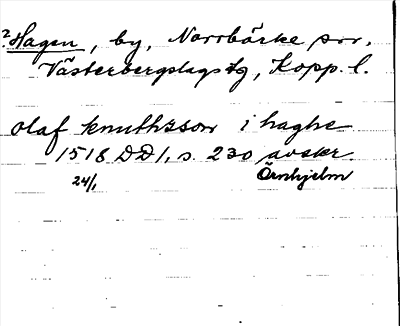 2 Hagen, by, Norrbärke sn.
Västerbergslags tg, Kopp. l.
olaf knuthzson i haghe
1518 DD 1, s. 230 avskr.
24/1 Örnhjelm